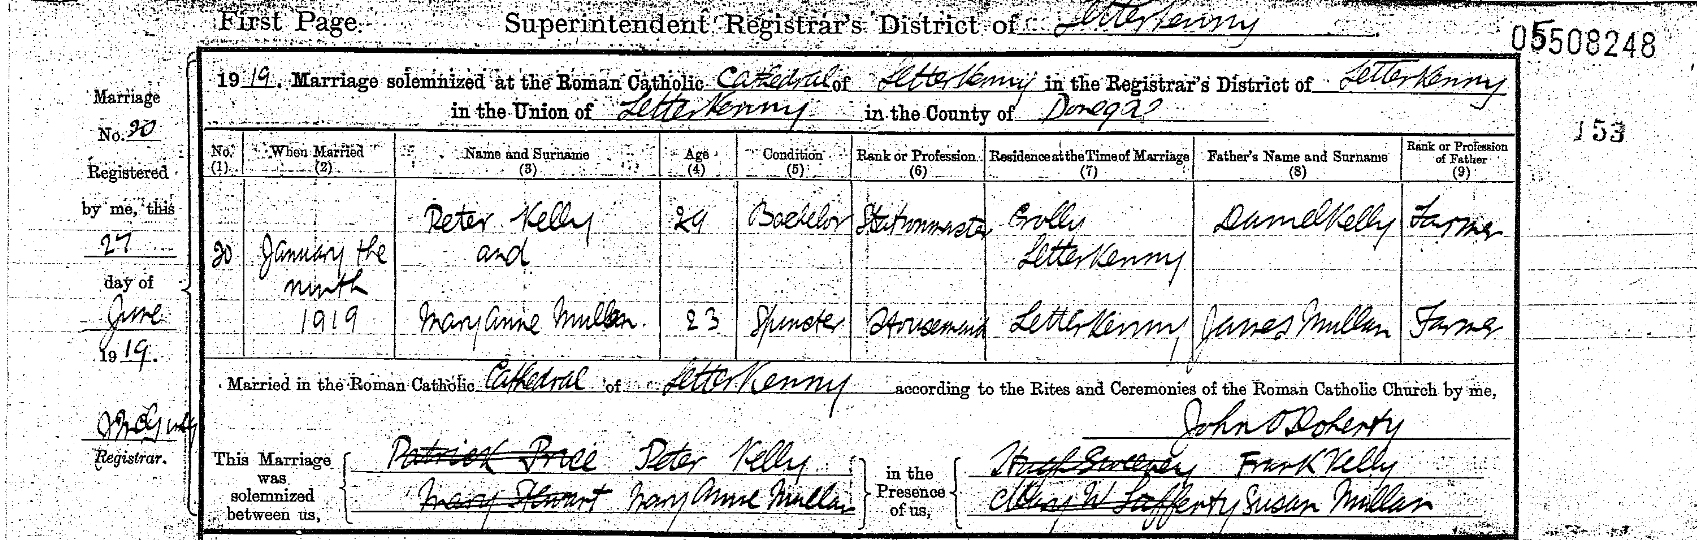 First Page. Superintendent Registrar's District of Letterkenny
05508248
1919. Marriage solemnized at the Roman Catholic Cathedral of Letterkenny in the Registrar's District of Letterkenny
in the Union of Letterkenny in the County of Donegal
153
Marriage
No. 20
Registered
by me, this
27
day of
June
1919.
Registrar.
No. (1) When Married (2) Name and Surname (3) Age (4) Condition (5) Rank or Profession (6) Residence at the Time of Marriage (7) Father's Name and Surname (8) Rank or Profession of Father (9)
Peter Kelly 29 Bachelor Stationmaster Crolly Daniel Kelly Farmer
20 January the and Letterkenny
ninth
1919 Mary Anne Mullan 23 Spinster Housemaid Letterkenny James Mullan Farmer
Married in the Roman Catholic Cathedral of Letterkenny according to the Rites and Ceremonies of the Roman Catholic Church by me,
John O'Doherty
This Marriage was solemnized between us,
Patrick Price Peter Kelly
Mary Stewart Mary Anne Mullan
in the Presence of us,
Hugh Sweeney Frank Kelly
W Lafferty Susan Mullan